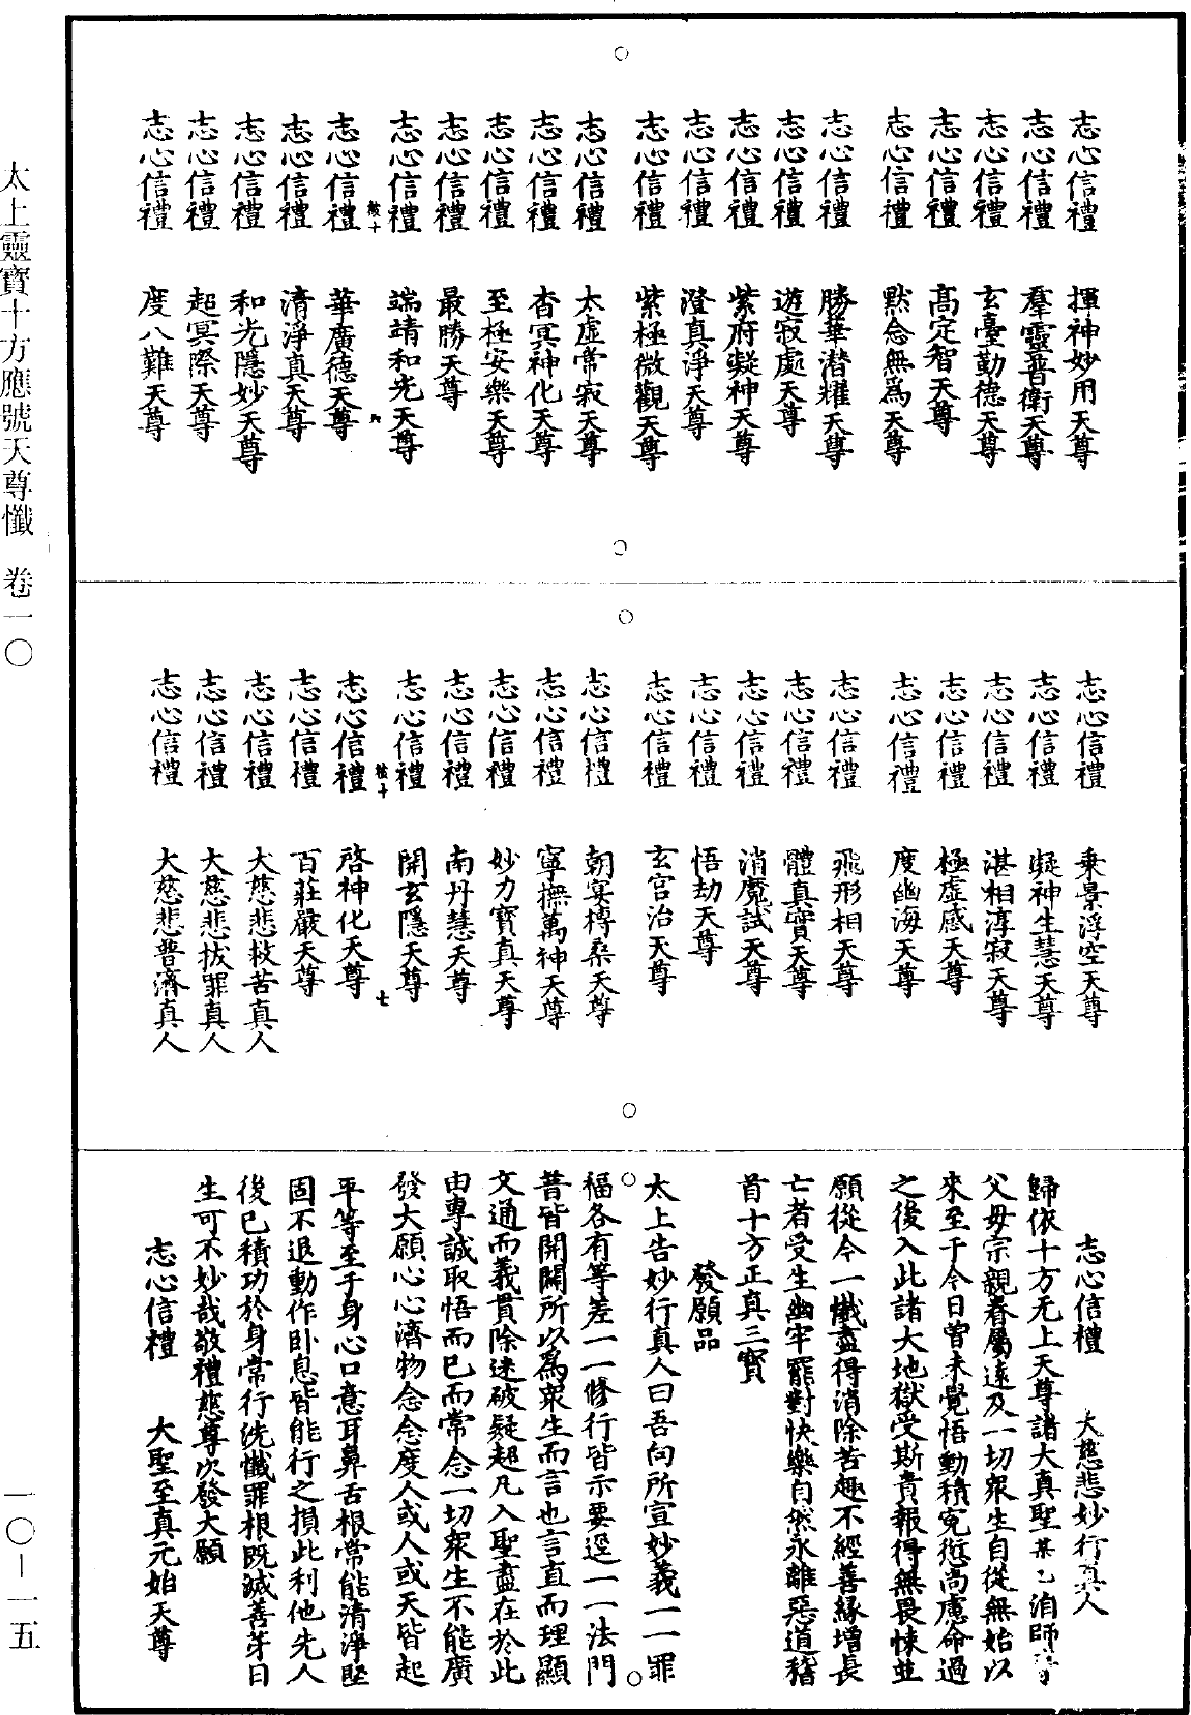 志心信禮　揮神妙用天尊
志心信禮　羣靈普衛天尊
志心信禮　玄臺勤德天尊
志心信禮　高定智天尊
志心信禮　默念無為天尊
志心信禮　勝華潛耀天尊
志心信禮　遊寂處天尊
志心信禮　紫府凝神天尊
志心信禮　澄真淨天尊
志心信禮　紫極微觀天尊
志心信禮　太虛常寂天尊
志心信禮　杳冥神化天尊
志心信禮　至極安樂天尊
志心信禮　最勝天尊
志心信禮　端靖和光天尊
志心信禮　華廣德天尊
志心信禮　清淨真天尊
志心信禮　和光隱妙天尊
志心信禮　超冥際天尊
志心信禮　度八難天尊
志心信禮　乗景浮空天尊
志心信禮　凝神生慧天尊
志心信禮　湛相淳寂天尊
志心信禮　極虛感天尊
志心信禮　度幽海天尊
志心信禮　飛形相天尊
志心信禮　體真寶天尊
志心信禮　消魔試天尊
志心信禮　悟劫天尊
志心信禮　玄宮治天尊
志心信禮　朝宴榑桑天尊
志心信禮　寧撫萬神天尊
志心信禮　妙力寶真天尊
志心信禮　南丹慧天尊
志心信禮　開玄隱天尊
七
志心信禮　啓神化天尊
志心信禮　百莊嚴天尊
志心信禮　大慈悲救苦真人
志心信禮　大慈悲拔罪真人
志心信禮　大慈悲普濟真人
志心信禮　大慈悲妙行真人
歸依十方无上天尊諸大真聖某乙洎師
父母宗親眷屬遠及一切衆生自從無始以
來至于今日曾未覺悟動積寃愆尚慮命過
之後入此諸大地獄受斯責報得無畏悚並
願從今一懺盡得消除苦趣不經善緣增長
亡者受生幽牢罷對快樂自然永離惡道稽
首十方正真三寳
發願品
太上告妙行真人曰吾向所宣妙義一一罪
福各有等差一一修行皆示要逕一一法門
普皆開闡所以為衆生而言也言直而理顯
文通而義貫除迷破疑超凡入聖盡在於此
由專誠取悟而已而常念一切衆生不能廣
發大願心心濟物念念度人或人或天皆起
平等至于身心口意耳鼻舌根常能清淨堅
固不退動作卧息皆能行之損此利他先人
後已積功於身常行洗懺罪根既滅善芽日
生可不妙哉敬禮慈尊次發大願
志心信禮　大聖至真元始天尊
太上靈寶十方應號天尊懺　卷一〇
一〇－一五